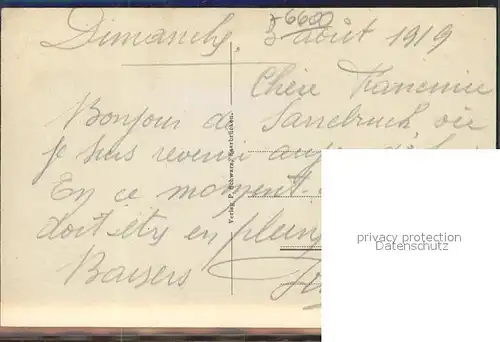 x6600
Dimanche, 3 août 1919
Chère Francine
Bonjour de Sarrebruck, où
je suis revenu
En ce moment
doit être en plein
Baisers
Verlag P. Schwarz, Saarbrücken.
privacy protection
Datenschutz